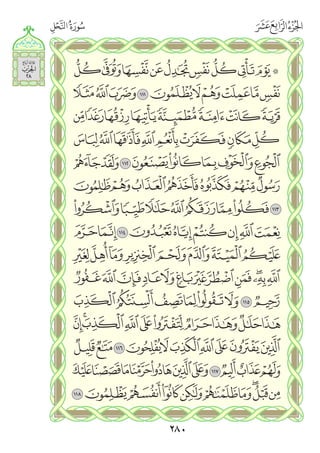 الجُزْءُ الرَّابِعَ عَشَرَ
سُورَةُ النَّحْلِ
الحِزْبُ
٢٨
۞ يَوْمَ تَأْتِي كُلُّ نَفْسٍ تُجَٰدِلُ عَن نَّفْسِهَا وَتُوَفَّىٰ كُلُّ
نَفْسٍ مَّا عَمِلَتْ وَهُمْ لَا يُظْلَمُونَ ١١١ وَضَرَبَ ٱللَّهُ مَثَلًا
قَرْيَةً كَانَتْ ءَامِنَةً مُّطْمَئِنَّةً يَأْتِيهَا رِزْقُهَا رَغَدًا مِّن
كُلِّ مَكَانٍ فَكَفَرَتْ بِأَنْعُمِ ٱللَّهِ فَأَذَٰقَهَا ٱللَّهُ لِبَاسَ
ٱلْجُوعِ وَٱلْخَوْفِ بِمَا كَانُوا۟ يَصْنَعُونَ ١١٢ وَلَقَدْ جَآءَهُمْ
رَسُولٌ مِّنْهُمْ فَكَذَّبُوهُ فَأَخَذَهُمُ ٱلْعَذَابُ وَهُمْ ظَٰلِمُونَ
١١٣ فَكُلُوا۟ مِمَّا رَزَقَكُمُ ٱللَّهُ حَلَٰلًا طَيِّبًا وَٱشْكُرُوا۟
نِعْمَتَ ٱللَّهِ إِن كُنتُمْ إِيَّاهُ تَعْبُدُونَ ١١٤ إِنَّمَا حَرَّمَ
عَلَيْكُمُ ٱلْمَيْتَةَ وَٱلدَّمَ وَلَحْمَ ٱلْخِنزِيرِ وَمَآ أُهِلَّ لِغَيْرِ
ٱللَّهِ بِهِۦ ۖ فَمَنِ ٱضْطُرَّ غَيْرَ بَاغٍ وَلَا عَادٍ فَإِنَّ ٱللَّهَ غَفُورٌ
رَّحِيمٌ ١١٥ وَلَا تَقُولُوا۟ لِمَا تَصِفُ أَلْسِنَتُكُمُ ٱلْكَذِبَ
هَٰذَا حَلَٰلٌ وَهَٰذَا حَرَامٌ لِّتَفْتَرُوا۟ عَلَى ٱللَّهِ ٱلْكَذِبَ ۚ إِنَّ
ٱلَّذِينَ يَفْتَرُونَ عَلَى ٱللَّهِ ٱلْكَذِبَ لَا يُفْلِحُونَ ١١٦ مَتَٰعٌ قَلِيلٌ
وَلَهُمْ عَذَابٌ أَلِيمٌ ١١٧ وَعَلَى ٱلَّذِينَ هَادُوا۟ حَرَّمْنَا مَا قَصَصْنَا عَلَيْكَ
مِن قَبْلُ ۖ وَمَا ظَلَمْنَٰهُمْ وَلَٰكِن كَانُوٓا۟ أَنفُسَهُمْ يَظْلِمُونَ ١١٨
٢٨٠